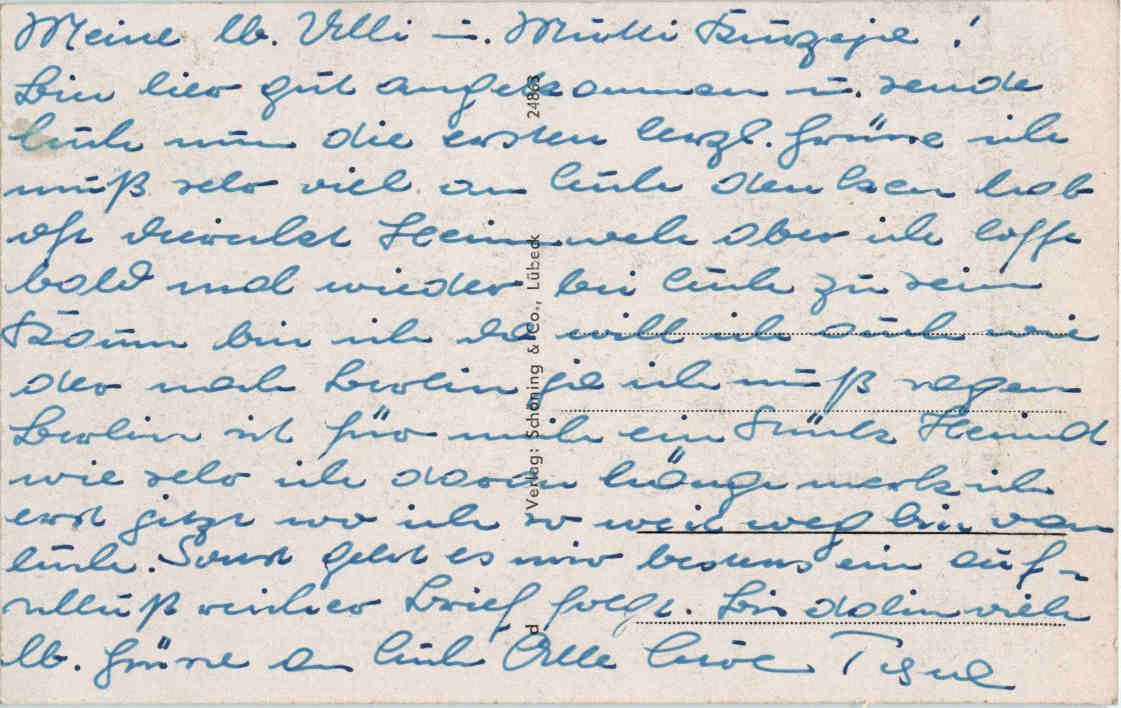 Meine lb. Ulli u. Mutti
Bin hier gut angekommen u. sende
Euch nun die ersten herzl. Grüsse ich
muß sehr viel an Euch denken hab
oft direchkt Heimweh aber ich hoffe
bald mal wieder bei Euch zu sein
Kaum bin ich da will ich auch wie
der nach Berlin ja ich muß sagen
Berlin ist für mich ein Stück Heimat
wie sehr ich daran hänge merk ich
erst jetzt wo ich so weit weg bin von
Euch. Sonst geht es mir bestens ein auf-
schlußreicher Brief folgt. Bis dahin viele
lb. Grüsse an Euch Alle Eure
Verlag: Schöning & Co., Lübeck
24863
d